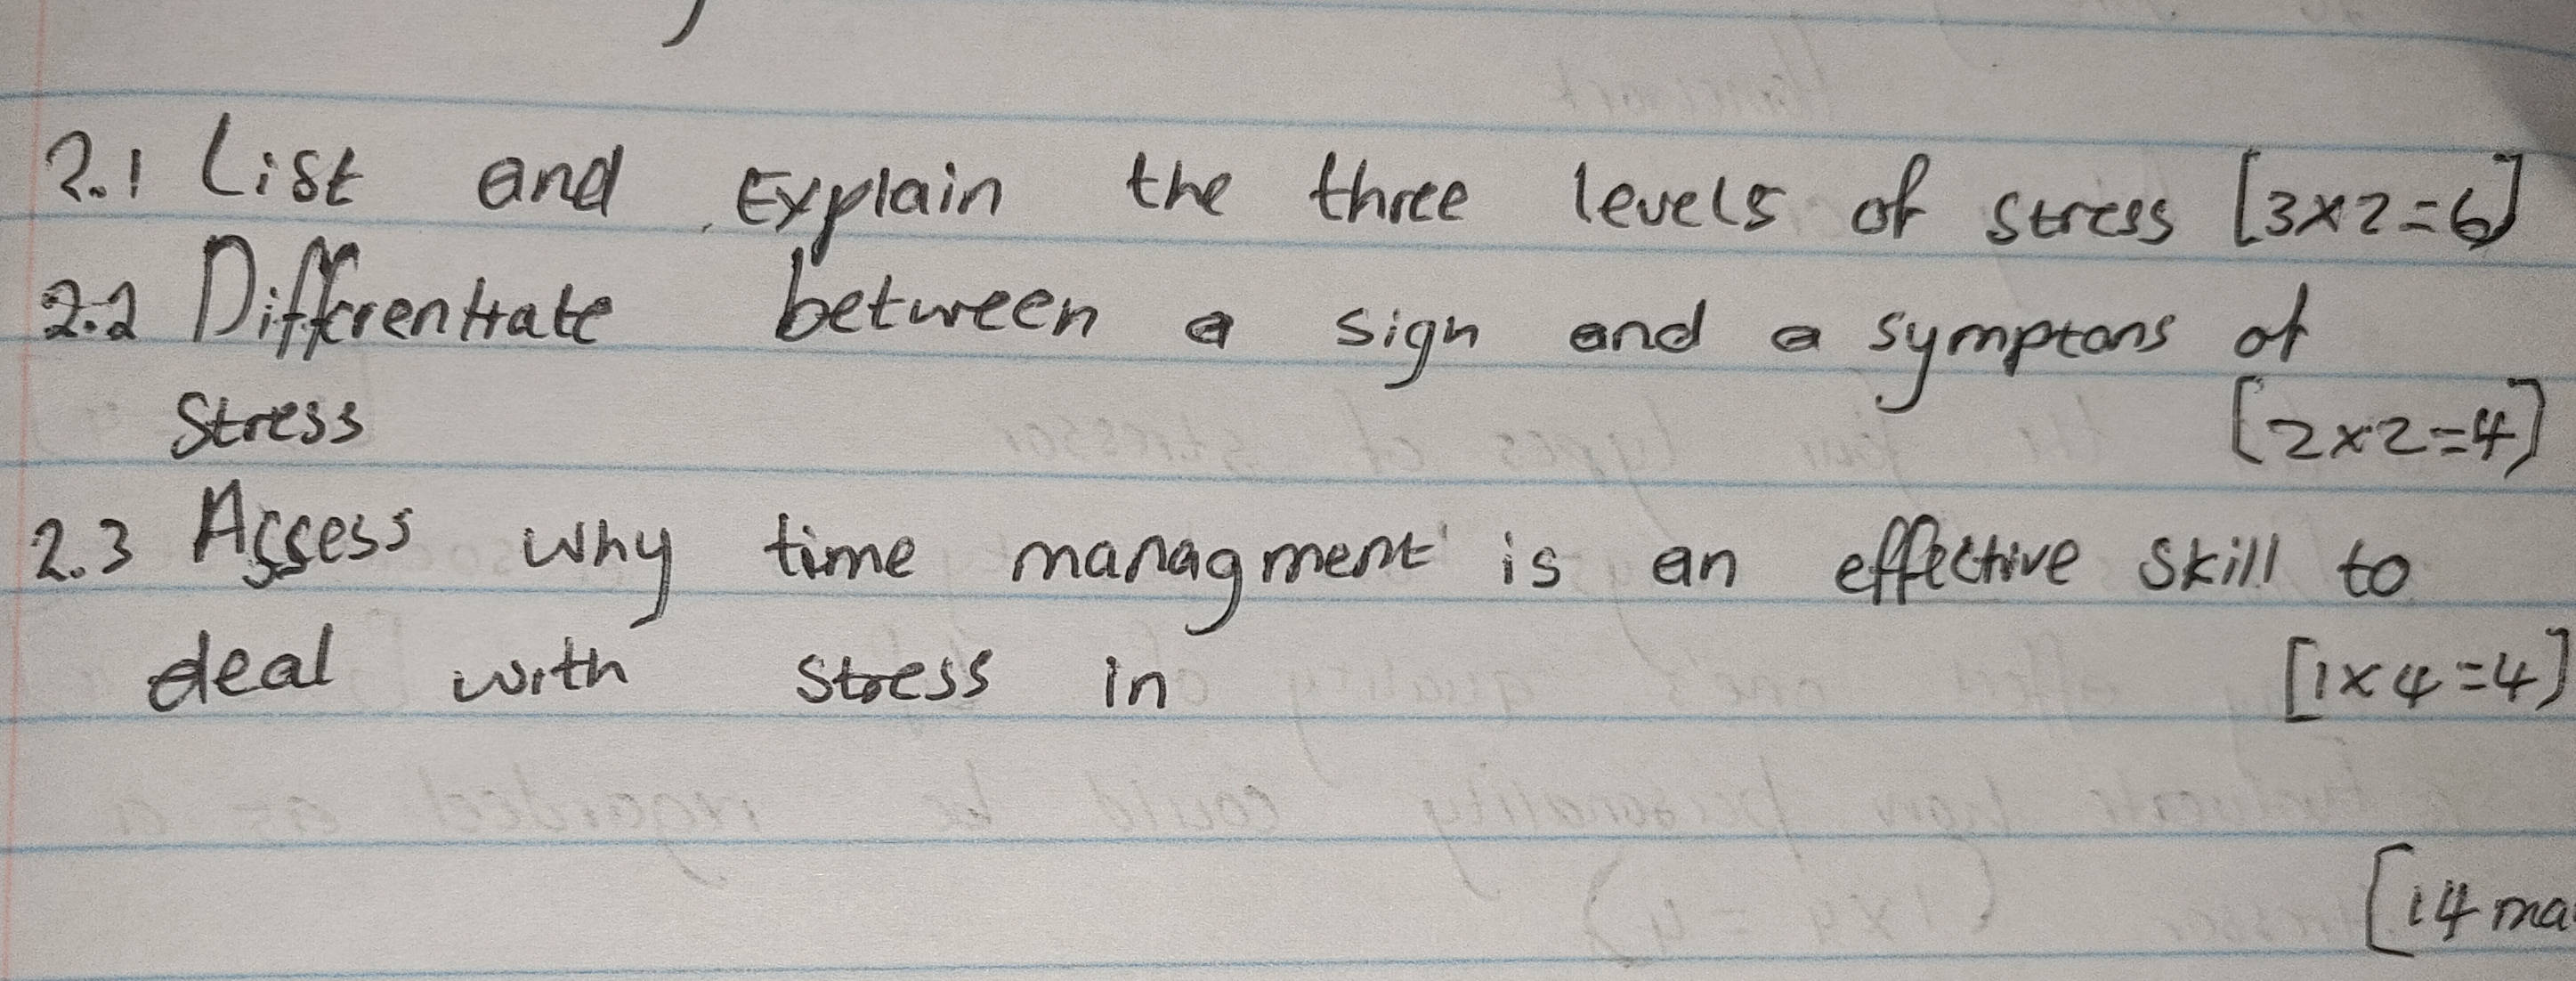 2.1 List and Explain the three levels of stress [3x2=6]
2.2 Differentiate between a sign and a symptons of
Stress [2x2=4]
2.3 Assess why time managment is an effective skill to
deal with stress in [1x4=4]
[14 ma